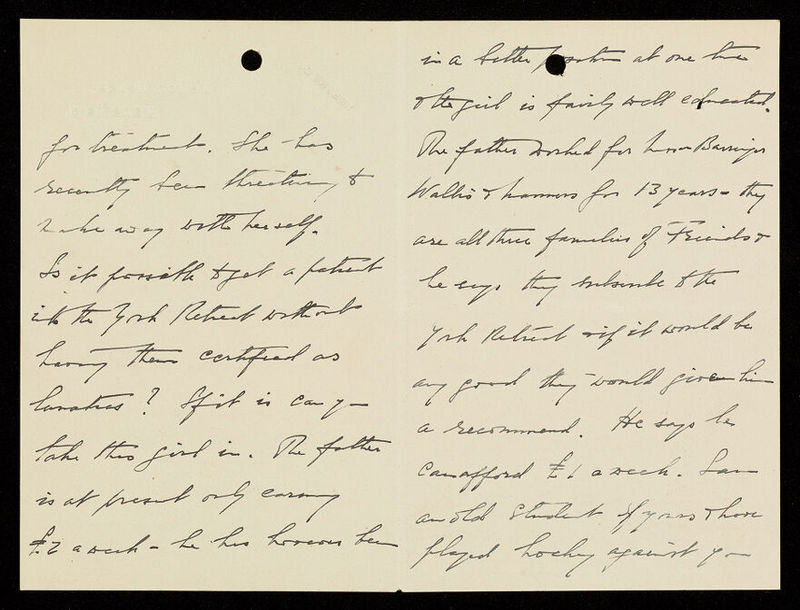 for treatment. She has
recently been threatening to
make away with herself.
Is it possible to get a patient
into the York Retreat without
having them certified as
lunatics? If it is can you
take this girl in. The father
is at present only earning
£2 a week – he has however been
in a better position at one time
& the girl is fairly well educated.
The father worked for Barringer
Wallis & Manners for 13 years – they
are all three families of Friends &
he says they subscribe to the
York Retreat & if it would be
any good they would give him
a recommend. He says he
can afford £1 a week. I am
an old student of yours & have
played hockey against you